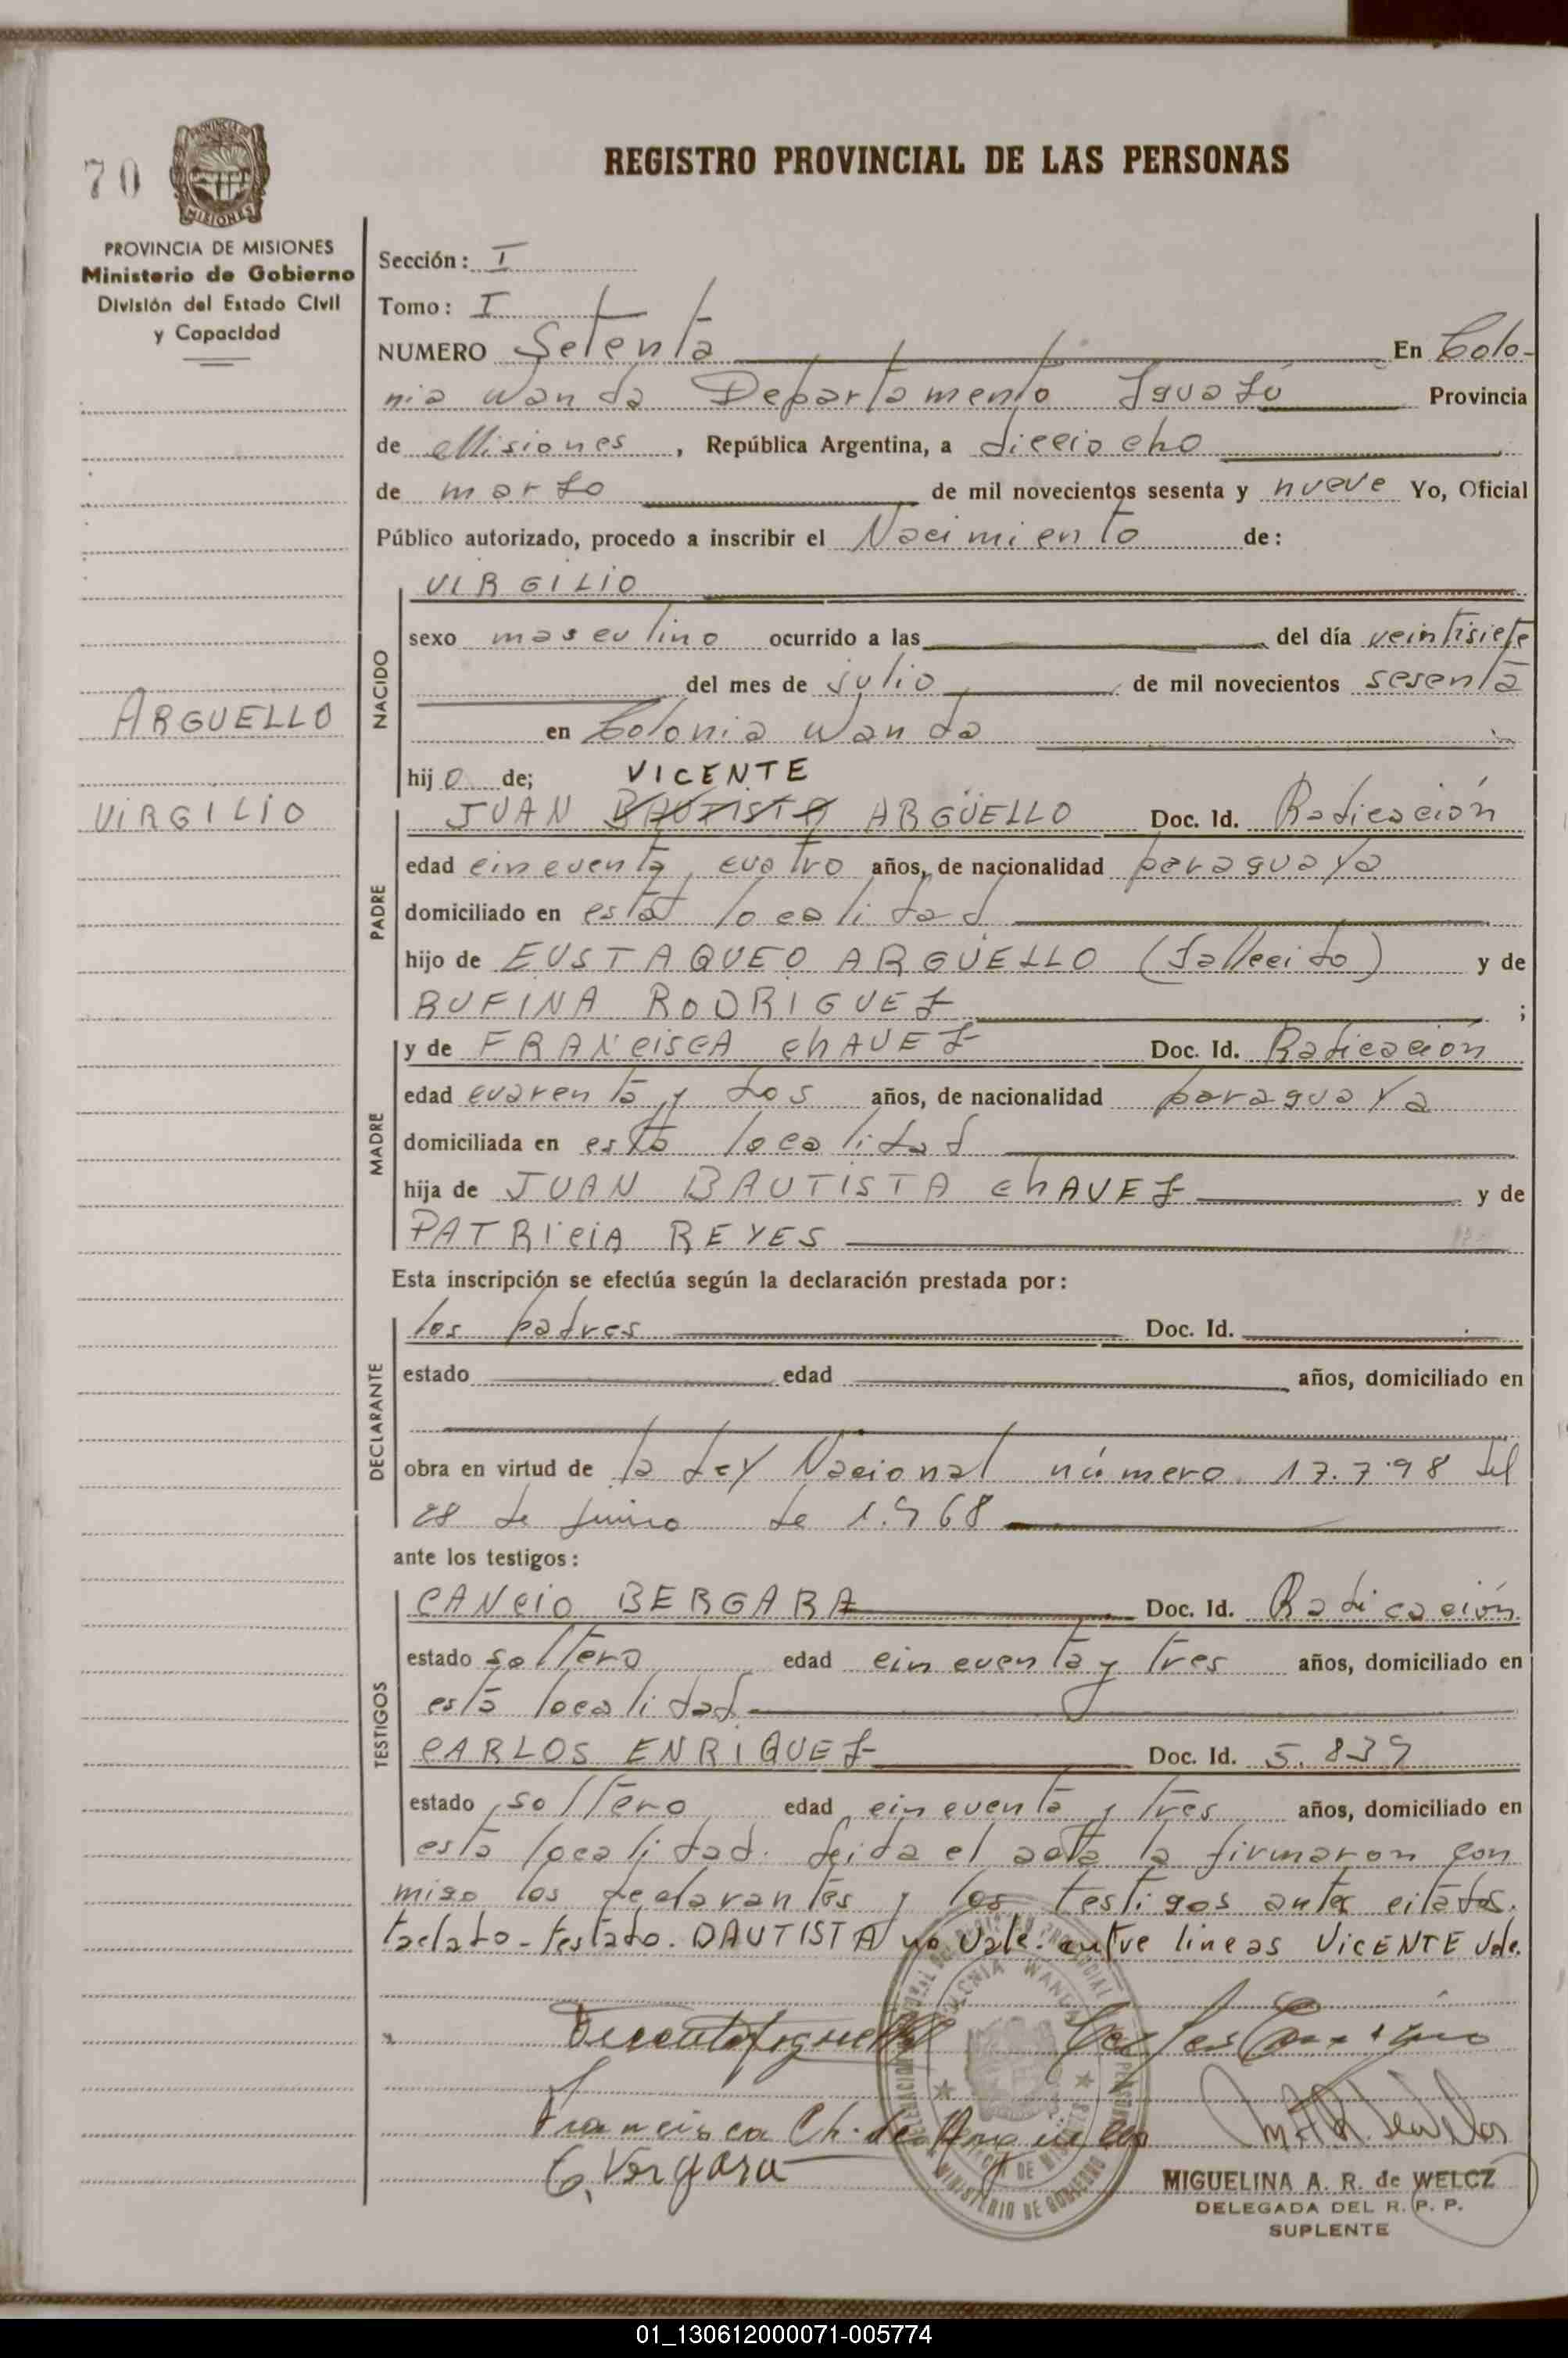 70
PROVINCIA DE
MISIONES
PROVINCIA DE MISIONES
Ministerio de Gobierno
División del Estado Civil
y Capacidad
ARGUELLO
VIRGILIO
REGISTRO PROVINCIAL DE LAS PERSONAS
Sección: I
Tomo: I
NUMERO Setenta En Colo-
nia Wanda Departamento Iguazú Provincia
de Misiones, República Argentina, a dieciocho
de marzo de mil novecientos sesenta y nueve Yo, Oficial
Público autorizado, procedo a inscribir el Nacimiento de:
NACIDO
VIRGILIO
sexo masculino ocurrido a las del día veintisiete
del mes de julio de mil novecientos sesenta
en Colonia Wanda
hijo de; VICENTE
PADRE
JUAN BAUTISTA ARGÜELLO Doc. Id. Radicación
edad cincuenta y cuatro años, de nacionalidad paraguaya
domiciliado en esta localidad
hijo de EUSTAQUEO ARGÜELLO (fallecido) y de
RUFINA RODRIGUEZ ;
MADRE
y de FRANCISCA CHAVEZ Doc. Id. Radicación
edad cuarenta y dos años, de nacionalidad paraguaya
domiciliada en esta localidad
hija de JUAN BAUTISTA CHAVEZ y de
PATRICIA REYES
Esta inscripción se efectúa según la declaración prestada por:
DECLARANTE
los padres Doc. Id.
estado edad años, domiciliado en
obra en virtud de la Ley Nacional número 17.798 del
28 de junio de 1.968
ante los testigos:
TESTIGOS
CANCIO BERGARA Doc. Id. Radicación
estado soltero edad cincuenta y tres años, domiciliado en
esta localidad
CARLOS ENRIQUEZ Doc. Id. 5.839
estado soltero edad cincuenta y tres años, domiciliado en
esta localidad. Leída el acta la firmaron con
migo los declarantes y los testigos antes citados.
testado. BAUTISTA no vale. entre lineas VICENTE Vale.
COLONIA WANDA
MINISTERIO DE GOBIERNO
Francisca Ch. de Arguello
C. Vergara
MIGUELINA A. R. de WELCZ
DELEGADA DEL R. P. P.
SUPLENTE
01_130612000071-005774